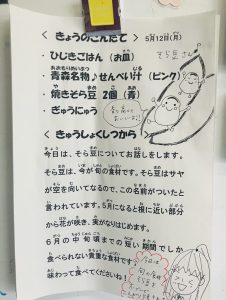 ＜ きょうのこんだて ＞ 5月12日(月)
・ひじきごはん（お皿）
・青森名物♪せんべい汁（ピンク）
・焼きそら豆 2個（青）
・ぎゅうにゅう
そら豆さん
＜ きゅうしょくしつから ＞
今日は、そら豆についてお話をします。
そら豆は、今が旬の食材です。そら豆はサヤ
が空を向いてなるので、この名前がついたと
言われています。5月になると根に近い部分
から花が咲き、実がなりはじめます。
6月の中旬頃までの短い期間でしか
食べられない貴重な食材です。
味わって食べてくださいね！
今日は
旬の食材
そら豆